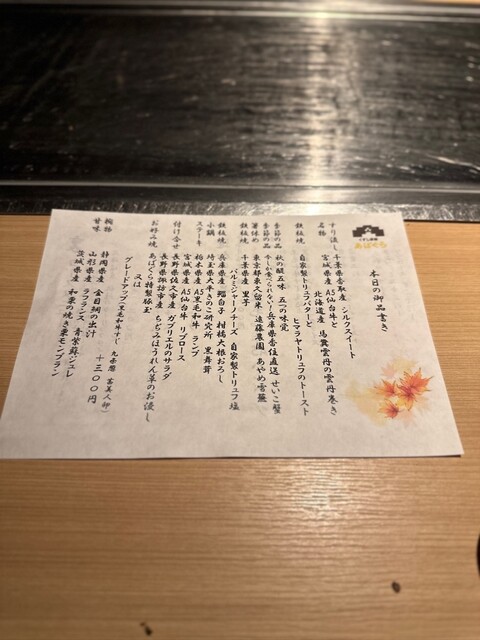 くずし鉄板
あばぐら
本日の御品書き
すり流し 千葉県香取産 シルクスイート
名物 宮城県産 A5仙台牛と
北海道産 馬糞雲丹の雲丹巻き
鉄板焼 自家製トリュフバターと
ヒマラヤトリュフのトースト
季節の品 秋の醍五味 五つの味覚
季節の品 今しか食べられない！兵庫県香住直送 せいこ蟹
箸休め 東京都東久留米 遠藤農園 あやめ雪蕪
鉄板焼 千葉県産 里芋
パルミジャーノチーズ 自家製トリュフ塩
鉄板焼 兵庫県産 鱈白子 柑橘大根おろし
小鍋 埼玉県大牛きのこ研究所 黒舞茸
ステーキ 栃木県産 A5黒毛和牛 ランプ
宮城県産 A5仙台牛 リブロース
付け合せ 長野県佐久市産 ガブリエルのサラダ
長野県諏訪市産 ちぢみほうれん草のお浸し
お好み焼 あばぐら特製豚玉
又は
グレードアップ（黒毛和牛すじ 九条葱 富美人卵）
＋三〇〇円
椀物 静岡県産 金目鯛の出汁
甘味 山形県産 ラフランス 青紫蘇ジュレ
茨城県産 和栗の焼き栗モンブラン